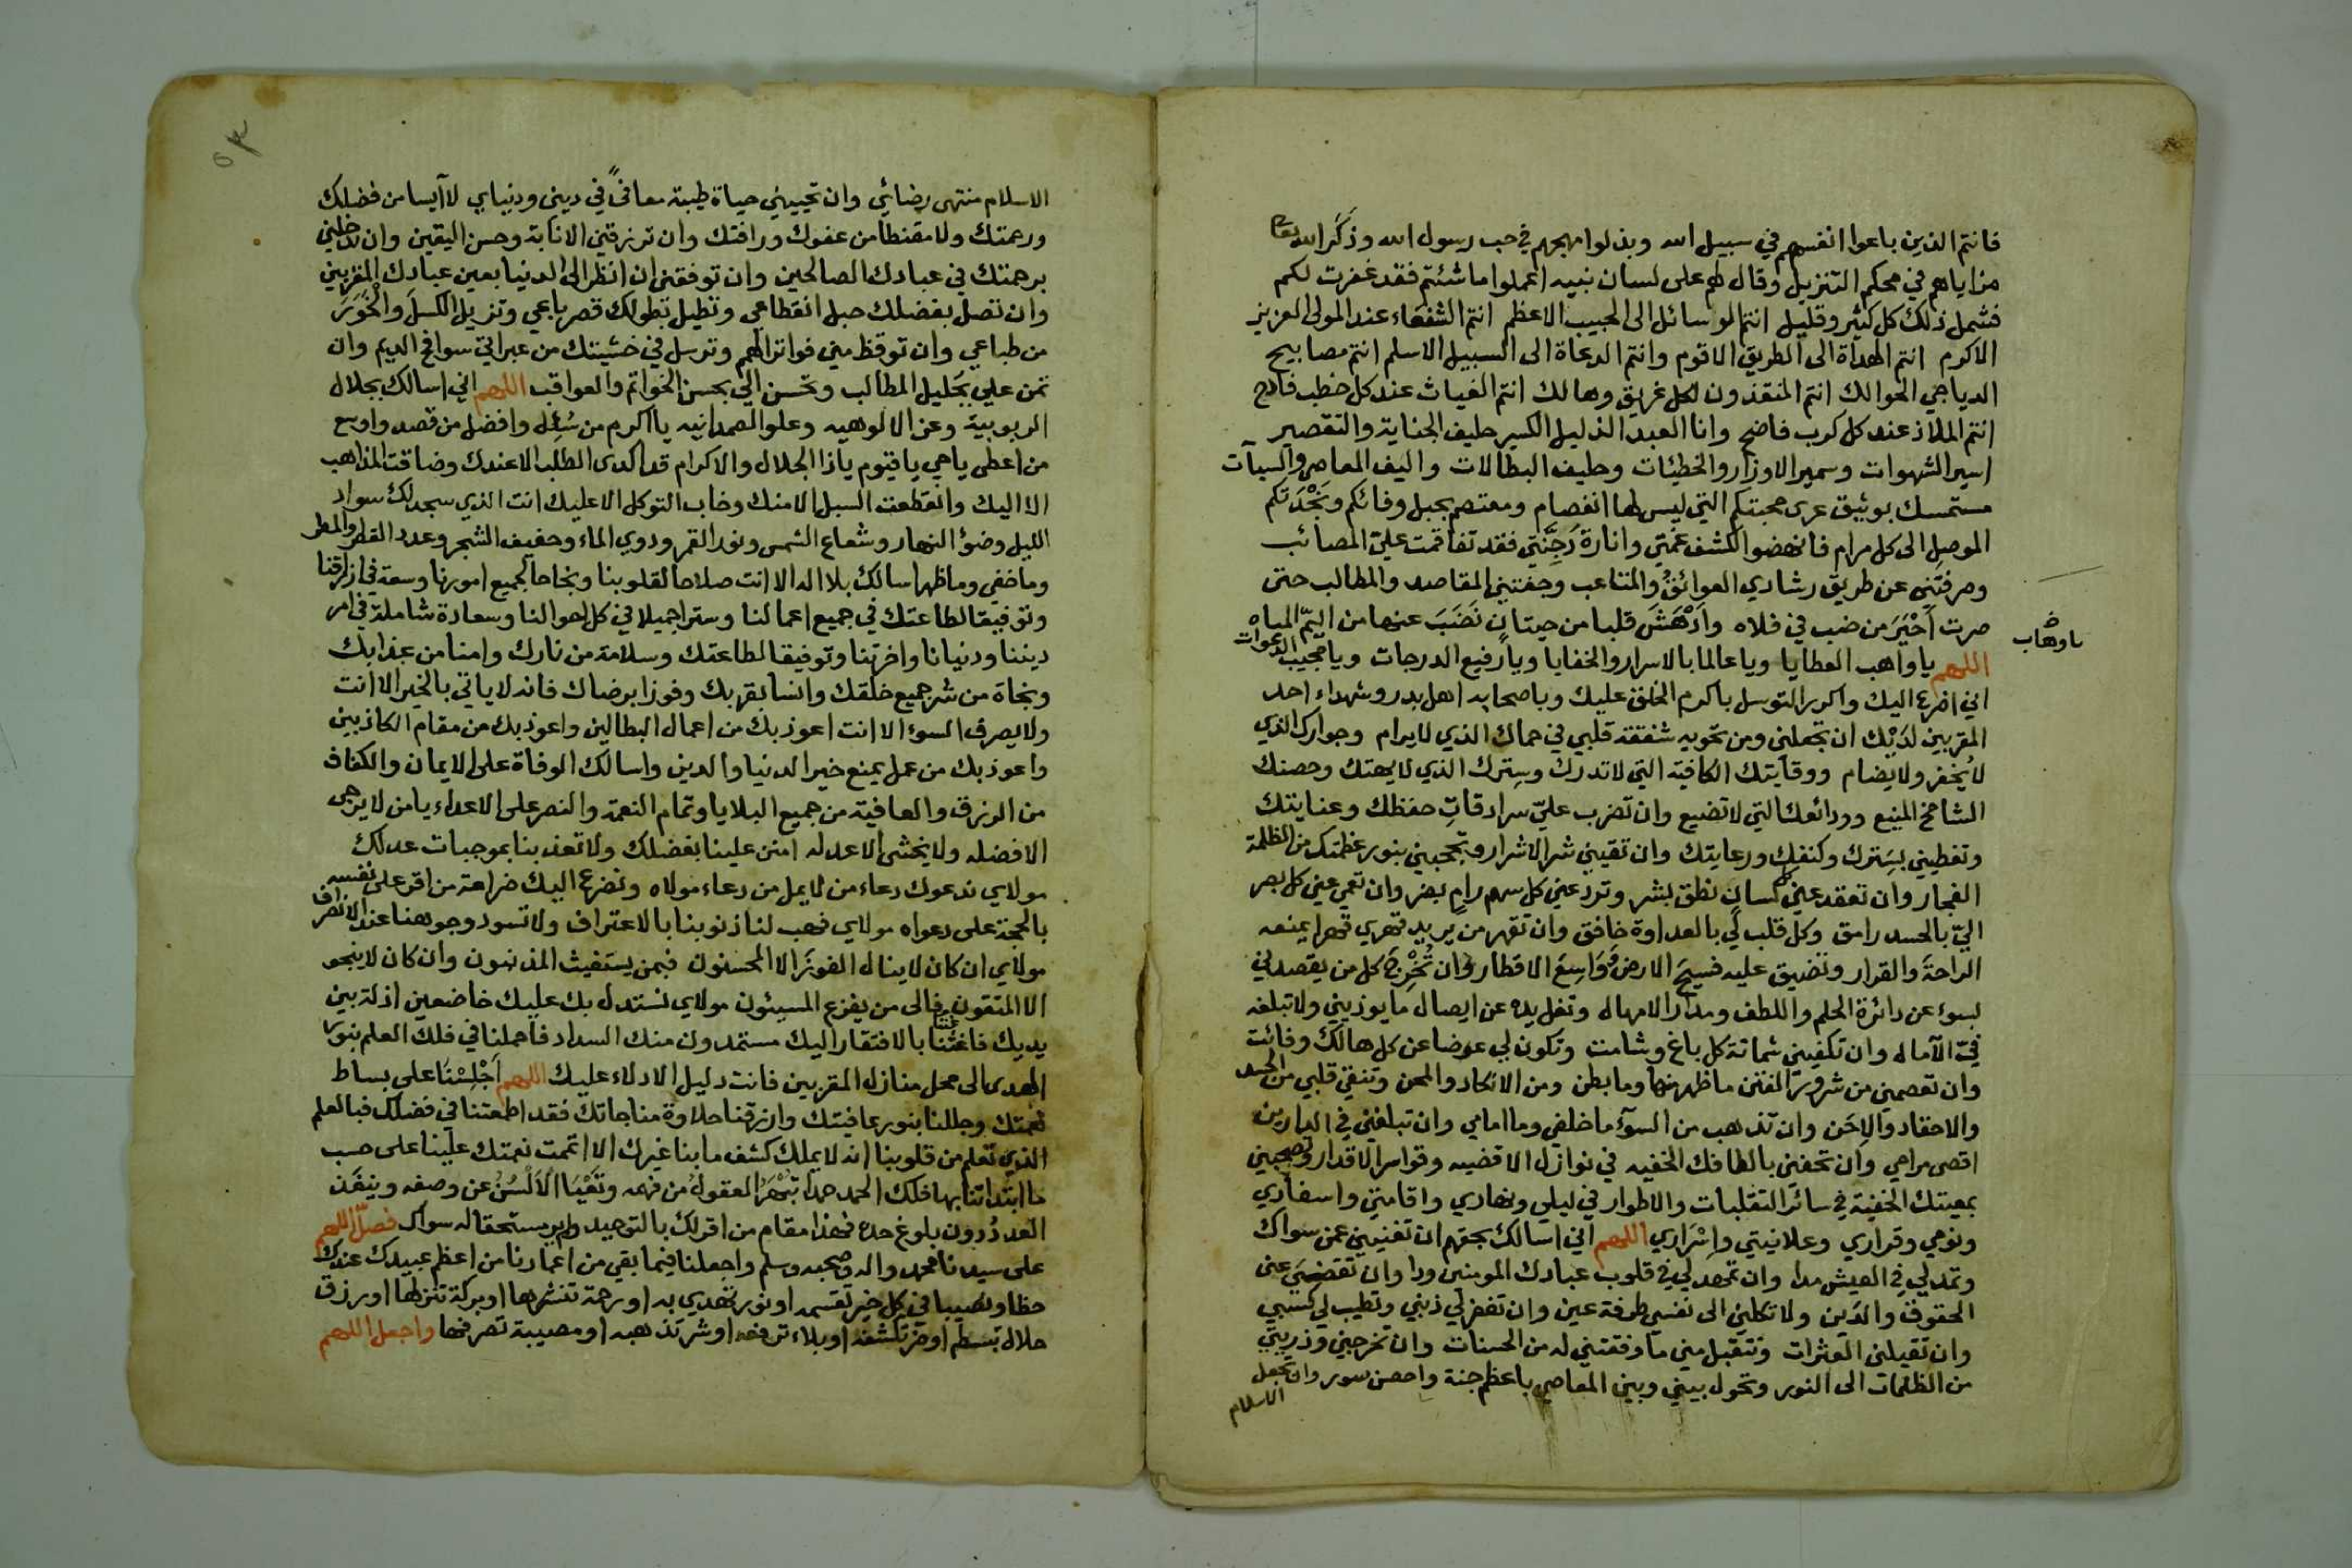 فانتم الذين باعوا انفسهم في سبيل الله وبذلوا مهجهم في حب رسول الله وذكر الله تعالى
مزاياهم في محكم التنزيل وقال لهم على لسان نبيه اعملوا ما شئتم فقد غفرت لكم
فشمل ذلك كل كثير وقليل انتم الوسائل الى الحبيب الاعظم انتم الشفعاء عند المولى العزيز
الاكرم انتم الهداة الى الطريق الاقوم وانتم الدعاة الى السبيل الاسلم انتم مصابيح
الدياجي الحوالك انتم المنقذون لكل غريق وهالك انتم الغياث عند كل خطب فادح
انتم الملاذ عند كل كرب فاضح وانا العبد الذليل الكسير حليف الجناية والتقصير
اسير الشهوات وسمير الاوزار والخطيئات وحليف البطالات واليف المعاصي والسيآت
مستمسك بوثيق عرى محبتكم التي ليس لها انفصام ومعتصم بحبل وفائكم ونَجْدَتكم
الموصِل الى كل مرام فانهضوا لكشف غمتي وانارة دُجنّتي فقد تفاقمت عليّ المصائب
وصرفتني عن طريق رشادي العوائق والمتاعب وجفتني المقاصد والمطالب حتى
صرت اَحْيَرَ من ضب في فلاه واَدْهَشَ قلبا من حيتان نَضَبَ عنها من اليمّ المياه
اللهم يا واهب العطايا ويا عالما بالاسرار والخفايا ويا رفيع الدرجات ويا مجيب الدعوات
ياوهاب
اني اضرع اليك واكرر التوسل باكرم الخلق عليك وباصحابه اهل بدر وشهداء احد
المقربين لدَيْك ان تجعلني ومن تحويه شفقة قلبي في حماك الذي لايرام وجوارك الذي
لايُخفر ولايضام ووقايتك الكافية التي لاتدرك وسِترك الذي لايهتك وحصنك
الشامخ المنيع وودائعك التي لاتضيع وان تضرب عليّ سرادقاتِ حفظك وعنايتك
وتغطيني بسِترك وكنفك ورعايتك وان تقيني شر الاشرار وتحجبني بنور عظمتك من الظلمة
الفجار وان تعقد عني كل لسان نطق بشر وترد عني كل سهم رامٍ بضر وان تعمي عني كل بصر
اليّ بالحسد رامق وكل قلب لي بالعداوة خافق وان تقهر من يريد قهري قهرا يمنعه
الراحة والقرار وتضيق عليه فسيحَ الارض وَوَاسِعَ الاقطار وان تُخْرِجَ كل من يقصدني
بسوء عن دائرة الحلم واللطف ومدار الامهال وتغل يده عن ايصال ما يوذيني ولاتبلغه
فيّ الآمال وان تكفيني شماتة كل باغ وشامت وتكون لي عوضا عن كل هالك وفائت
وان تعصمني من شرور الفتن ما ظهر منها وما بطن ومن الانكاد والمحن وتنقي قلبي من الحسد
والاحقاد والاِحَن وان تذهب من السوآء ما خلفي وما امامي وان تبلغني في الدارين
اقصى مرامي وان تحفني بالطافك الخفيه في نوازل الاقضيه وقواسر الاقدار وتصحبني
بمعيتك الخفية في سائر التقلبات والاطوار في ليلي ونهاري واقامتي واسفاري
ونومي وقراري وعلانيتي واِسْرَاري اللهم اني اسالك بحقهم ان تغنيني عمن سواك
وتمد لي في العيش مدا وان تمهد لي في قلوب عبادك المومنين ودا وان تقضي عني
الحقوق والدَين ولا تكلني الى نفسي طرفة عين وان تغفر لي ذنبي وتطيب لي كسبي
وان تقيلني العثرات وتتقبل مني ما وفقتني له من الحسنات وان تخرجني وذريتي
من الظلمات الى النور وتحول بيني وبين المعاصي باعظم جنة واحصن سور وان تجعل
الاسلام
٥٣
الاسلام منتهى رضائي وان تحييني حياة طيبة معافىً في ديني ودنياي لا آيسا من فضلك
ورحمتك ولا مقنطا من عفوك ورافتك وان ترزقني الانابة وحسن اليقين وان تدخلني
برحمتك في عبادك الصالحين وان توفقني ان انظر الى الدنيا بعين عبادك المقربين
وان تصل بفضلك حبل انقطاعي وتطيل بطولك قصر باعي وتزيل الكسلَ والخَوَرَ
من طباعي وان توقظ مني فواتر الهمم وترسل في خشيتك من عبراتي سوافح الديم وان
تمن علي بجليل المطالب وتحسن الي بحسن الخواتم والعواقب اللهم اني اسالك بجلال
الربوبية وعز الالوهيه وعلو الصمدانيه يا اكرم من سُئِل وافضل من قصد واوسع
من اعطى يا حي يا قيوم يا ذا الجلال والاكرام قد اكدى الطلب الا عندك وضاقت المذاهب
الا اليك وانقطعت السبل الا منك وخاب التوكل الا عليك انت الذي سجد لك سواد
الليل وضوء النهار وشعاع الشمس ونور القمر ودوي الماء وحفيف الشجر وعدد القطر والمطر
وما خفي وما ظهر اسالك بلا اله الا انت صلاحا لقلوبنا ونجاحا لجميع امورنا وسعة في ارزاقنا
وتوفيقا لطاعتك في جميع اعمالنا وسترا جميلا في كل احوالنا وسعادة شاملة في امر
ديننا ودنيانا واخرتنا وتوفيقا لطاعتك وسلامة من نارك وامنا من عذابك
ونجاة من شر جميع خلقك وانسا بقربك وفوزا برضاك فانه لا ياتي بالخير الا انت
ولايصرف السوء الا انت اعوذ بك من اعمال البطالين واعوذ بك من مقام الكاذبين
واعوذ بك من عمل يمنع خير الدنيا والدين واسالك الوفاة على الايمان والكفاف
من الرزق والعافية من جميع البلايا وتمام النعمة والنصر على الاعداء يا من لا يرجى
الا فضله ولا يخشى الا عدله امنن علينا بفضلك ولا تعذبنا بموجبات عدلك
مولاي ندعوك دعاء من لم يمل من دعاء مولاه ونضرع اليك ضراعة من اقر على نفسه
بالحجة على دعواه مولاي فهب لنا ذنوبنا بالاعتراف ولا تسود وجوهنا عند الانصراف
مولاي ان كان لاينال الفوزَ الا المحسنون فبمن يستغيث المذنبون وان كان لاينجو
الا المتقون فالى من يفزع المسيئون مولاي نستدل بك عليك خاضعين اذلة بين
يديك فاغثنا بالافتقار اليك مستمدون منك السداد فاحملنا في فلك العلم بنور
الهدى الى محل منازل المقربين فانت دليل الادلاء عليك اللهم اَجْلِسْنَا على بساط
نعمتك وجللنا بنور عافيتك وارزقنا حلاوة مناجاتك فقد اطمعتنا في فضلك فبالعلم
الذي تعلم من قلوبنا انه لايملك كشف ما بنا غيرك الا اتممت نعمتك علينا على حسب
ما ابتداتنا بها فلك الحمد حمدا تبْهَرُ العقولُ من فهمه وتَعْيَا الاَلْسُنُ عن وصفه وينفَد
العَددُ دون بلوغ حده فهذا مقام من اقر لك بالتوحيد ولم ير مستحقا له سواك فصلّ اللهم
على سيدنا محمد واله وصحبه وسلم واجعلنا فيما بقي من اعمارنا من اعظم عبيدك عندك
حظا ونصيبا في كل خير تقسمه او نور تهدي به او رحمة تنشرها او بركة تنزلها او رزق
حلال تبسطه او ضر تكشفه او بلاء ترفعه او شر تذهبه او مصيبة تصرفها واجعل اللهم